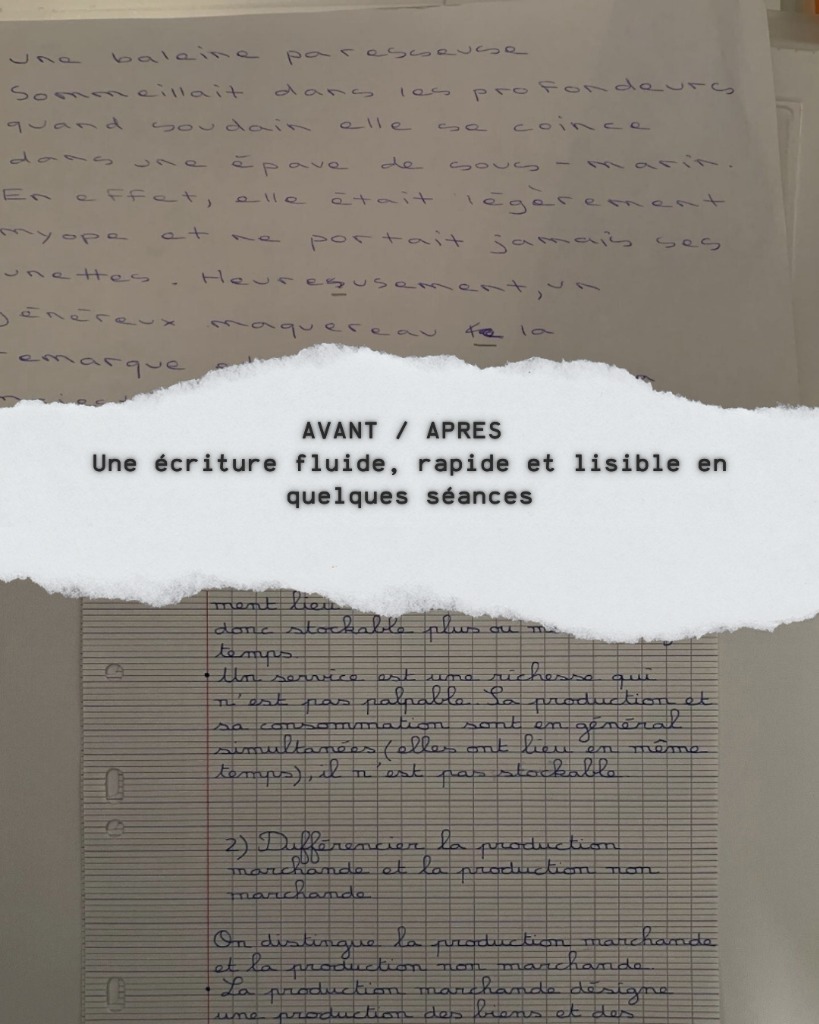 une baleine paresseuse
Sommeillait dans les profondeurs
quand soudain elle se coince
dans une épave de sous-marin.
En effet, elle était légèrement
myope et ne portait jamais ses
unettes. Heureusement, un
généreux maquereau la
emarque
AVANT / APRES
Une écriture fluide, rapide et lisible en
quelques séances
ment lieu
donc stockable plus ou
temps.
• Un service est une richesse qui
n'est pas palpable. Sa production et
sa consommation sont en général
simultanées (elles ont lieu en même
temps), il n'est pas stockable.
2) Différencier la production
marchande et la production non
marchande
On distingue la production marchande
et la production non marchande.
• La production marchande désigne
une production des biens et des